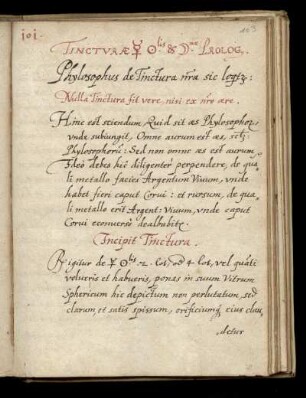 101.
113
TINCTURÆ ☿ ☉lis & PROLOG.
Phylosophus de Tinctura nra sic
Nulla Tinctura fit vere nisi ex nro ære.
Hinc est sciendum Quid sit æs
vnde subiungit, Omne aurum est æs,
Phylosophorū: Sed non omne æs est aurum.
Ideo debes hic diligenter perpendere, de qua
li metallo facies Argentum Viuum, vnde
habet fieri caput Corui: et rursum, de qua
li metallo erit Argent: Viuum, vnde caput
Corui econuerso
Incipit Tinctura.
de ☿ ☉lis vel quāti
volueris et habueris, ponas in suum Vitrum
Sphericum hic depictum non perlutatum, sed
clarum et satis spissum, orificiumq eius clau,